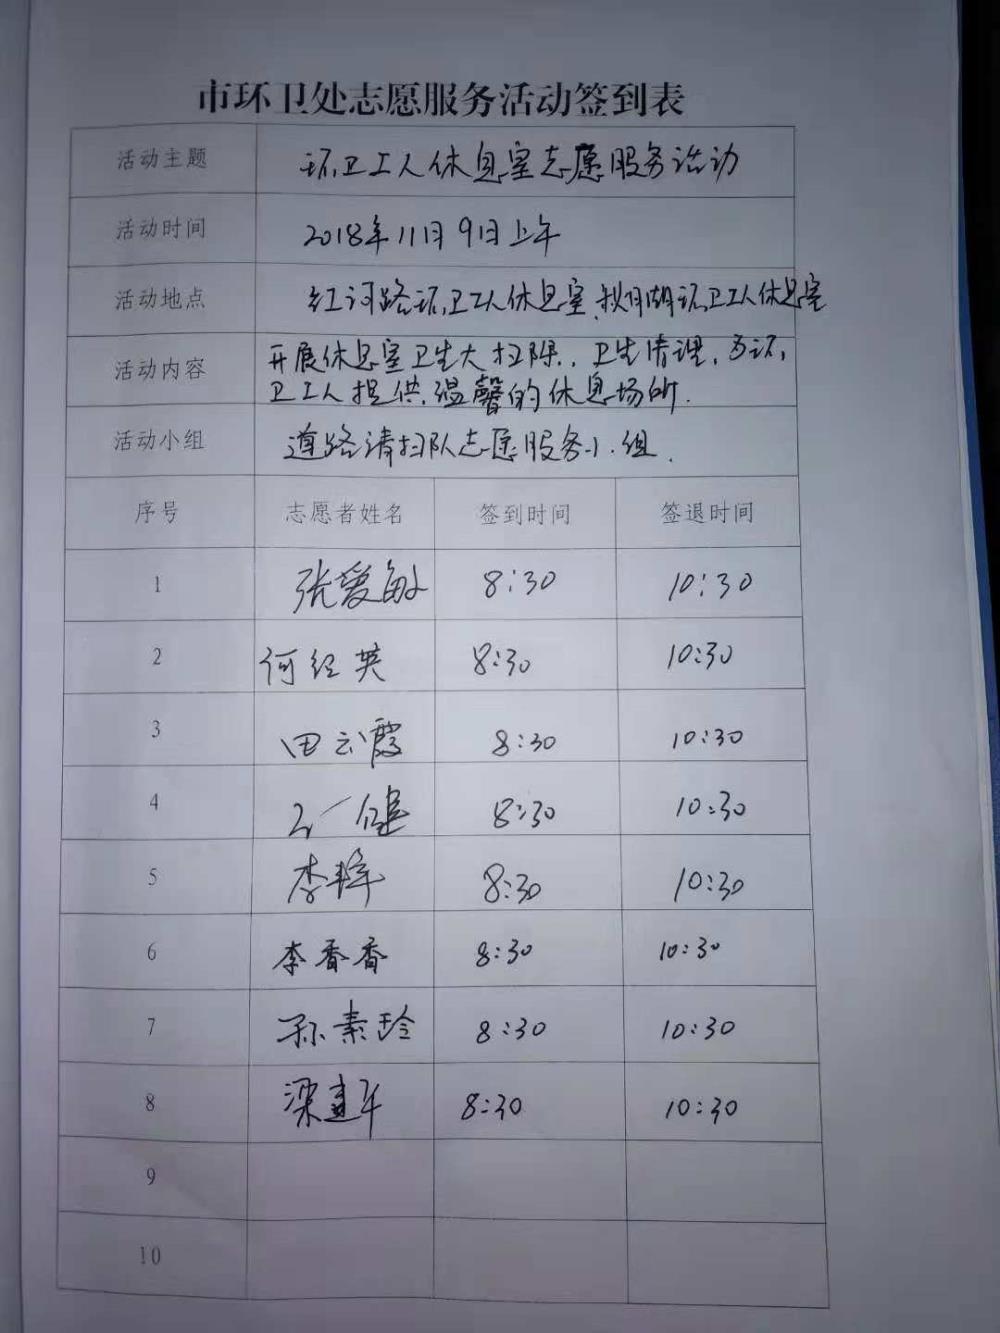 市环卫处志愿服务活动签到表
活动主题 环卫工人休息室志愿服务活动
活动时间 2018年11月9日上午
活动地点 红河路环卫工人休息室、秋月湖环卫工人休息室
活动内容 开展休息室卫生大扫除,卫生清理,为环,
卫工人提供温馨的休息场所.
活动小组 道路清扫队志愿服务小组.
序号 志愿者姓名 签到时间 签退时间
1 张爱敏 8:30 10:30
2 何红英 8:30 10:30
3 田云霞 8:30 10:30
4 8:30 10:30
5 李 8:30 10:30
6 李香香 8:30 10:30
7 孙素玲 8:30 10:30
8 梁建军 8:30 10:30
9
10